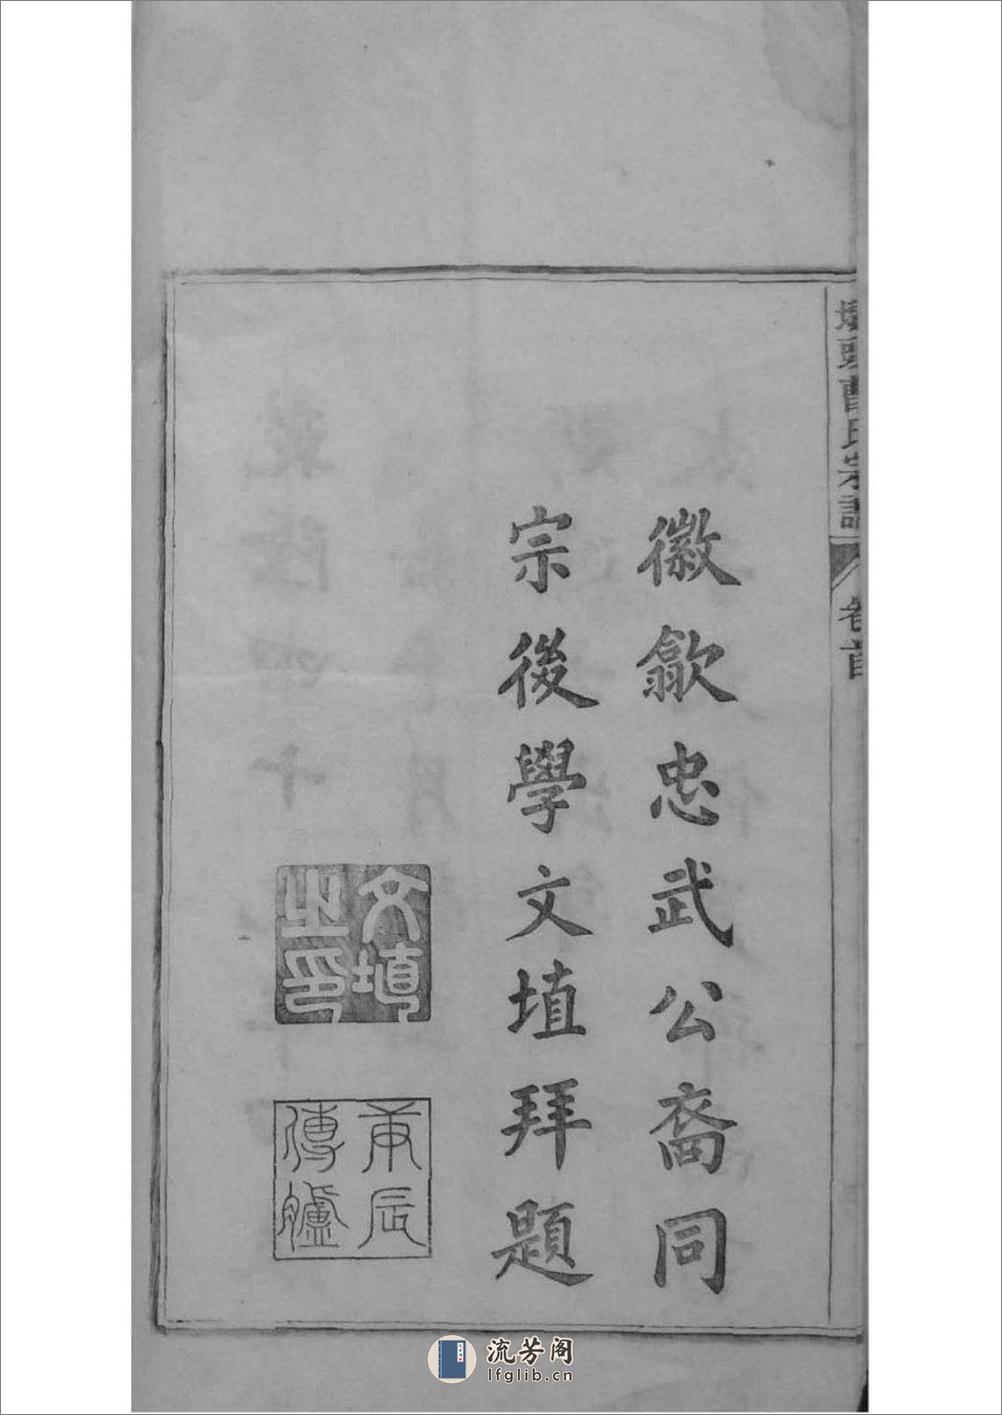 徽歙忠武公裔同
宗後學文埴拜題
文埴之印
庚辰傳臚
頭曹氏宗譜
卷首
流芳阁
lfglib.cn